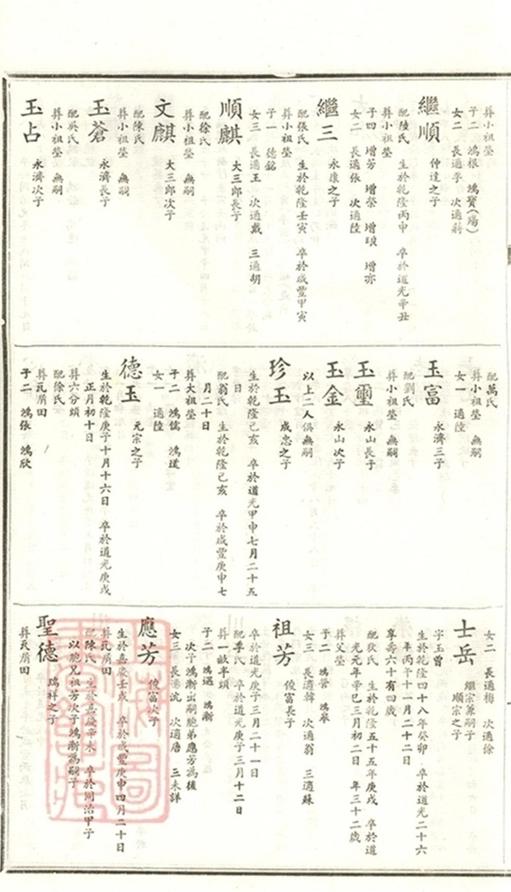 葬小祖塋
子二 鴻根 鴻賢(殤)
女二 長適李 次適蔣
繼順 仲達之子
配陸氏 生於乾隆丙申 卒於道光辛丑
葬小祖塋
子四 增芳 增榮 增琅 增亦
女二 長適張 次適陸
繼三 永康之子
配張氏 生於乾隆壬寅 卒於咸豐甲寅
葬小祖塋
子一 德銘
女三 長適王 次適戴 三適胡
順麒 大三郎長子
配徐氏
葬小祖塋 無嗣
文麒 大三郎次子
配陳氏
葬小祖塋 無嗣
玉蒼 永濟長子
配吳氏
葬小祖塋 無嗣
玉占 永濟次子
配萬氏
葬小祖塋 無嗣
女一 適陸
玉富 永濟三子
配劉氏
葬小祖塋 無嗣
玉璽 永山長子
玉金 永山次子
以上二人俱無嗣
珍玉 成忠之子
生於乾隆己亥 卒於道光甲申七月二十五
日
配翁氏 生於乾隆己亥 卒於咸豐庚申七
月二十日
葬大祖塋
子二 鴻儒 鴻道
女一 適陸
德玉 元宗之子
生於乾隆庚子十月十六日 卒於道光庚戌
正月初十日
葬六分頭
配徐氏
葬瓦屑田
子二 鴻張 鴻欣
女二 長適梅 次適徐
士岳 繼宗兼嗣子
順宗之子
字玉曾
生於乾隆四十八年癸卯 卒於道光二十六
年丙午十一月二十二日
享壽六十有四歲
配狄氏 生於乾隆五十五年庚戌 卒於道
光元年辛巳三月初二日 年三十二歲
葬父塋
子二 鴻管 鴻皋
女三 長適韓 次適翁 三適蘇
祖芳 俊富長子
卒於道光庚子三月二十一日
配季氏 卒於道光庚子三月十二日
葬一畝半頭
子二 鴻遇 鴻漸
次子鴻漸出嗣胞弟應芳為後
女三 長適沈 次適唐 三未詳
應芳 俊富次子
生於嘉慶壬戌 卒於咸豐庚申四月二十日
葬瓦屑田
配陳氏 生於嘉慶辛未 卒於同治甲子
以胞兄祖芳次子鴻漸為嗣子
聖德 瑞祥之子
葬瓦屑田